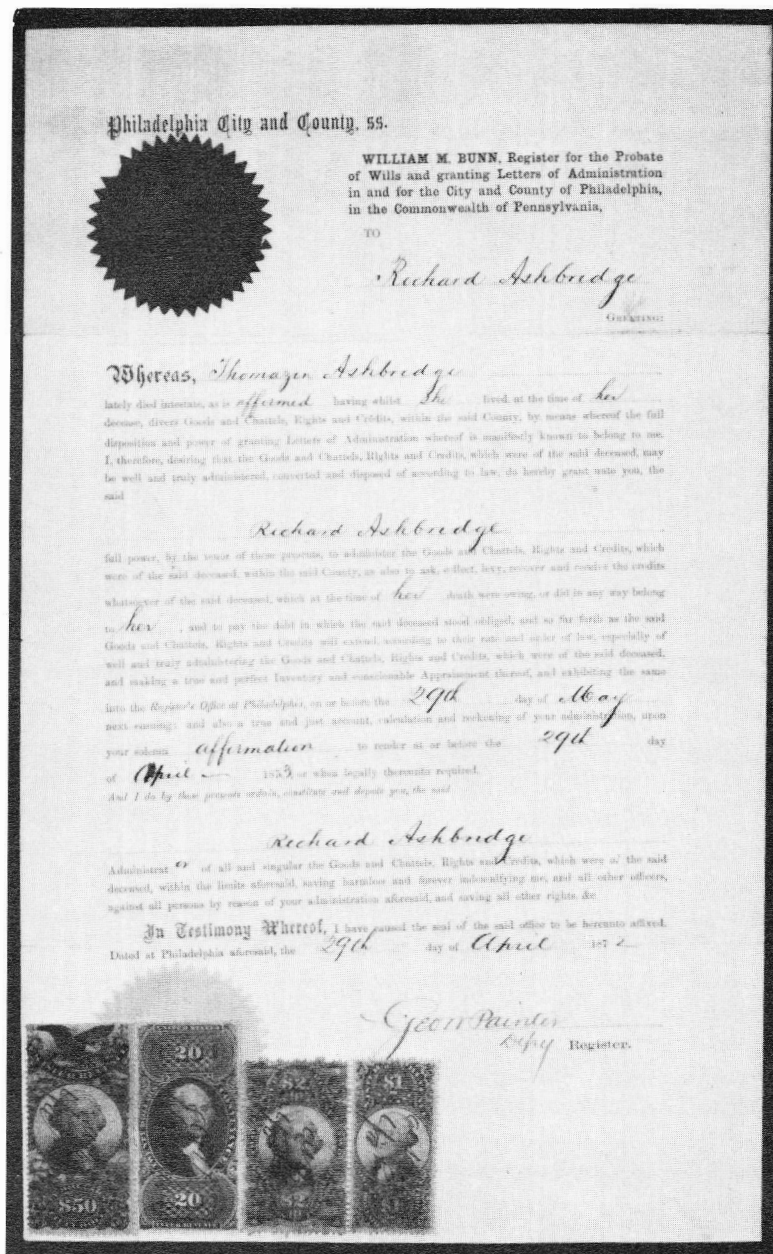 Philadelphia City and County, ss.
WILLIAM M. BUNN, Register for the Probate
of Wills and granting Letters of Administration
in and for the City and County of Philadelphia,
in the Commonwealth of Pennsylvania,
TO
Richard Ashbridge
GREETING:
Whereas, Thomazin Ashbridge
lately died intestate, as is affirmed having whilst she lived, at the time of her
decease, divers Goods and Chattels, Rights and Credits, within the said County, by means whereof the full
disposition and power of granting Letters of Administration whereof is manifestly known to belong to me,
I, therefore, desiring that the Goods and Chattels, Rights and Credits, which were of the said deceased, may
be well and truly administered, converted and disposed of according to law, do hereby grant unto you, the
said
Richard Ashbridge
full power, by the tenor of these presents, to administer the Goods and Chattels, Rights and Credits, which
were of the said deceased, within the said County, as also to ask, collect, levy, recover and receive the credits
whatsoever of the said deceased, which at the time of her death were owing, or did in any way belong
to her, and to pay the debt in which the said deceased stood obliged, and so far forth as the said
Goods and Chattels, Rights and Credits will extend, according to their rate and order of law, especially of
well and truly administering the Goods and Chattels, Rights and Credits, which were of the said deceased,
and making a true and perfect Inventory and conscionable Appraisement thereof, and exhibiting the same
into the Register's Office at Philadelphia, on or before the 29th day of May
next ensuing: and also a true and just account, calculation and reckoning of your administration, upon
your solemn affirmation to render at or before the 29th day
of April 1873, or when legally thereunto required.
And I do by these presents ordain, constitute and depute you, the said
Richard Ashbridge
Administrator of all and singular the Goods and Chattels, Rights and Credits, which were of the said
deceased, within the limits aforesaid, saving harmless and forever indemnifying me, and all other officers,
against all persons by reason of your administration aforesaid, and saving all other rights, &c
In Testimony Whereof, I have caused the seal of the said office to be hereunto affixed.
Dated at Philadelphia aforesaid, the 29th day of April 1872
Geo W Painter
Depy Register.
$50
20
20
$2
$2
$1
$1